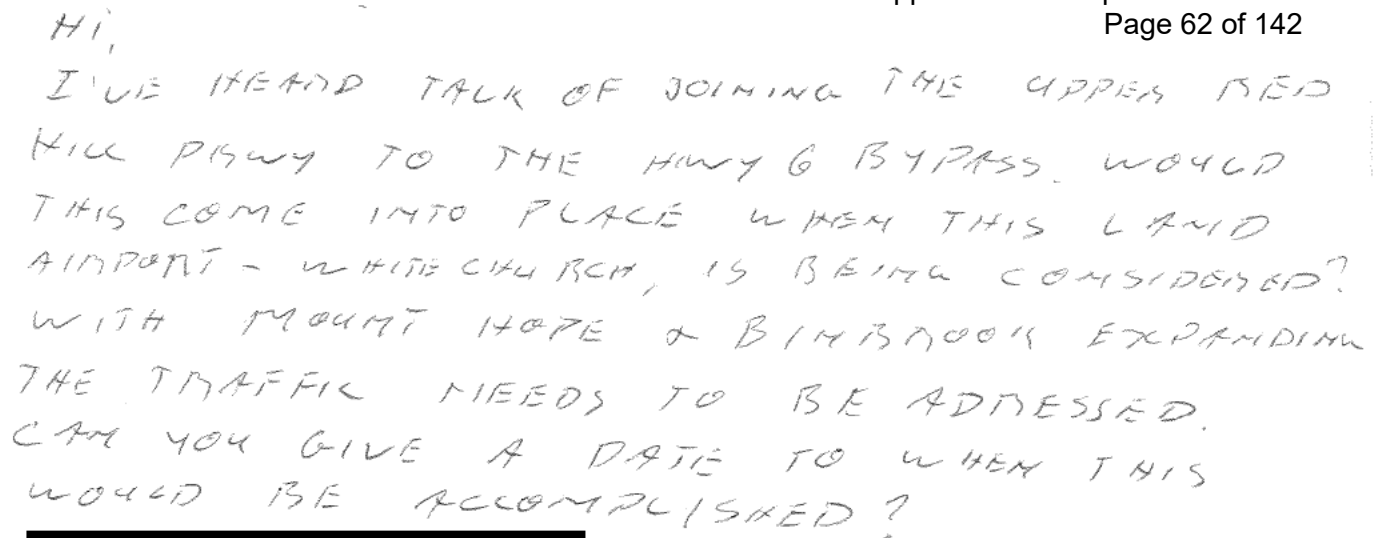 Page 62 of 142
HI,
I'VE HEARD TALK OF JOINING THE UPPER RED
HILL PKWY TO THE HWY 6 BYPASS. WOULD
THIS COME INTO PLACE WHEN THIS LAND
AIRPORT - WHITECHURCH, IS BEING CONSIDERED?
WITH MOUNT HOPE & BINBROOK EXPANDING
THE TRAFFIC NEEDS TO BE ADRESSED.
CAN YOU GIVE A DATE TO WHEN THIS
WOULD BE ACCOMPLISHED?